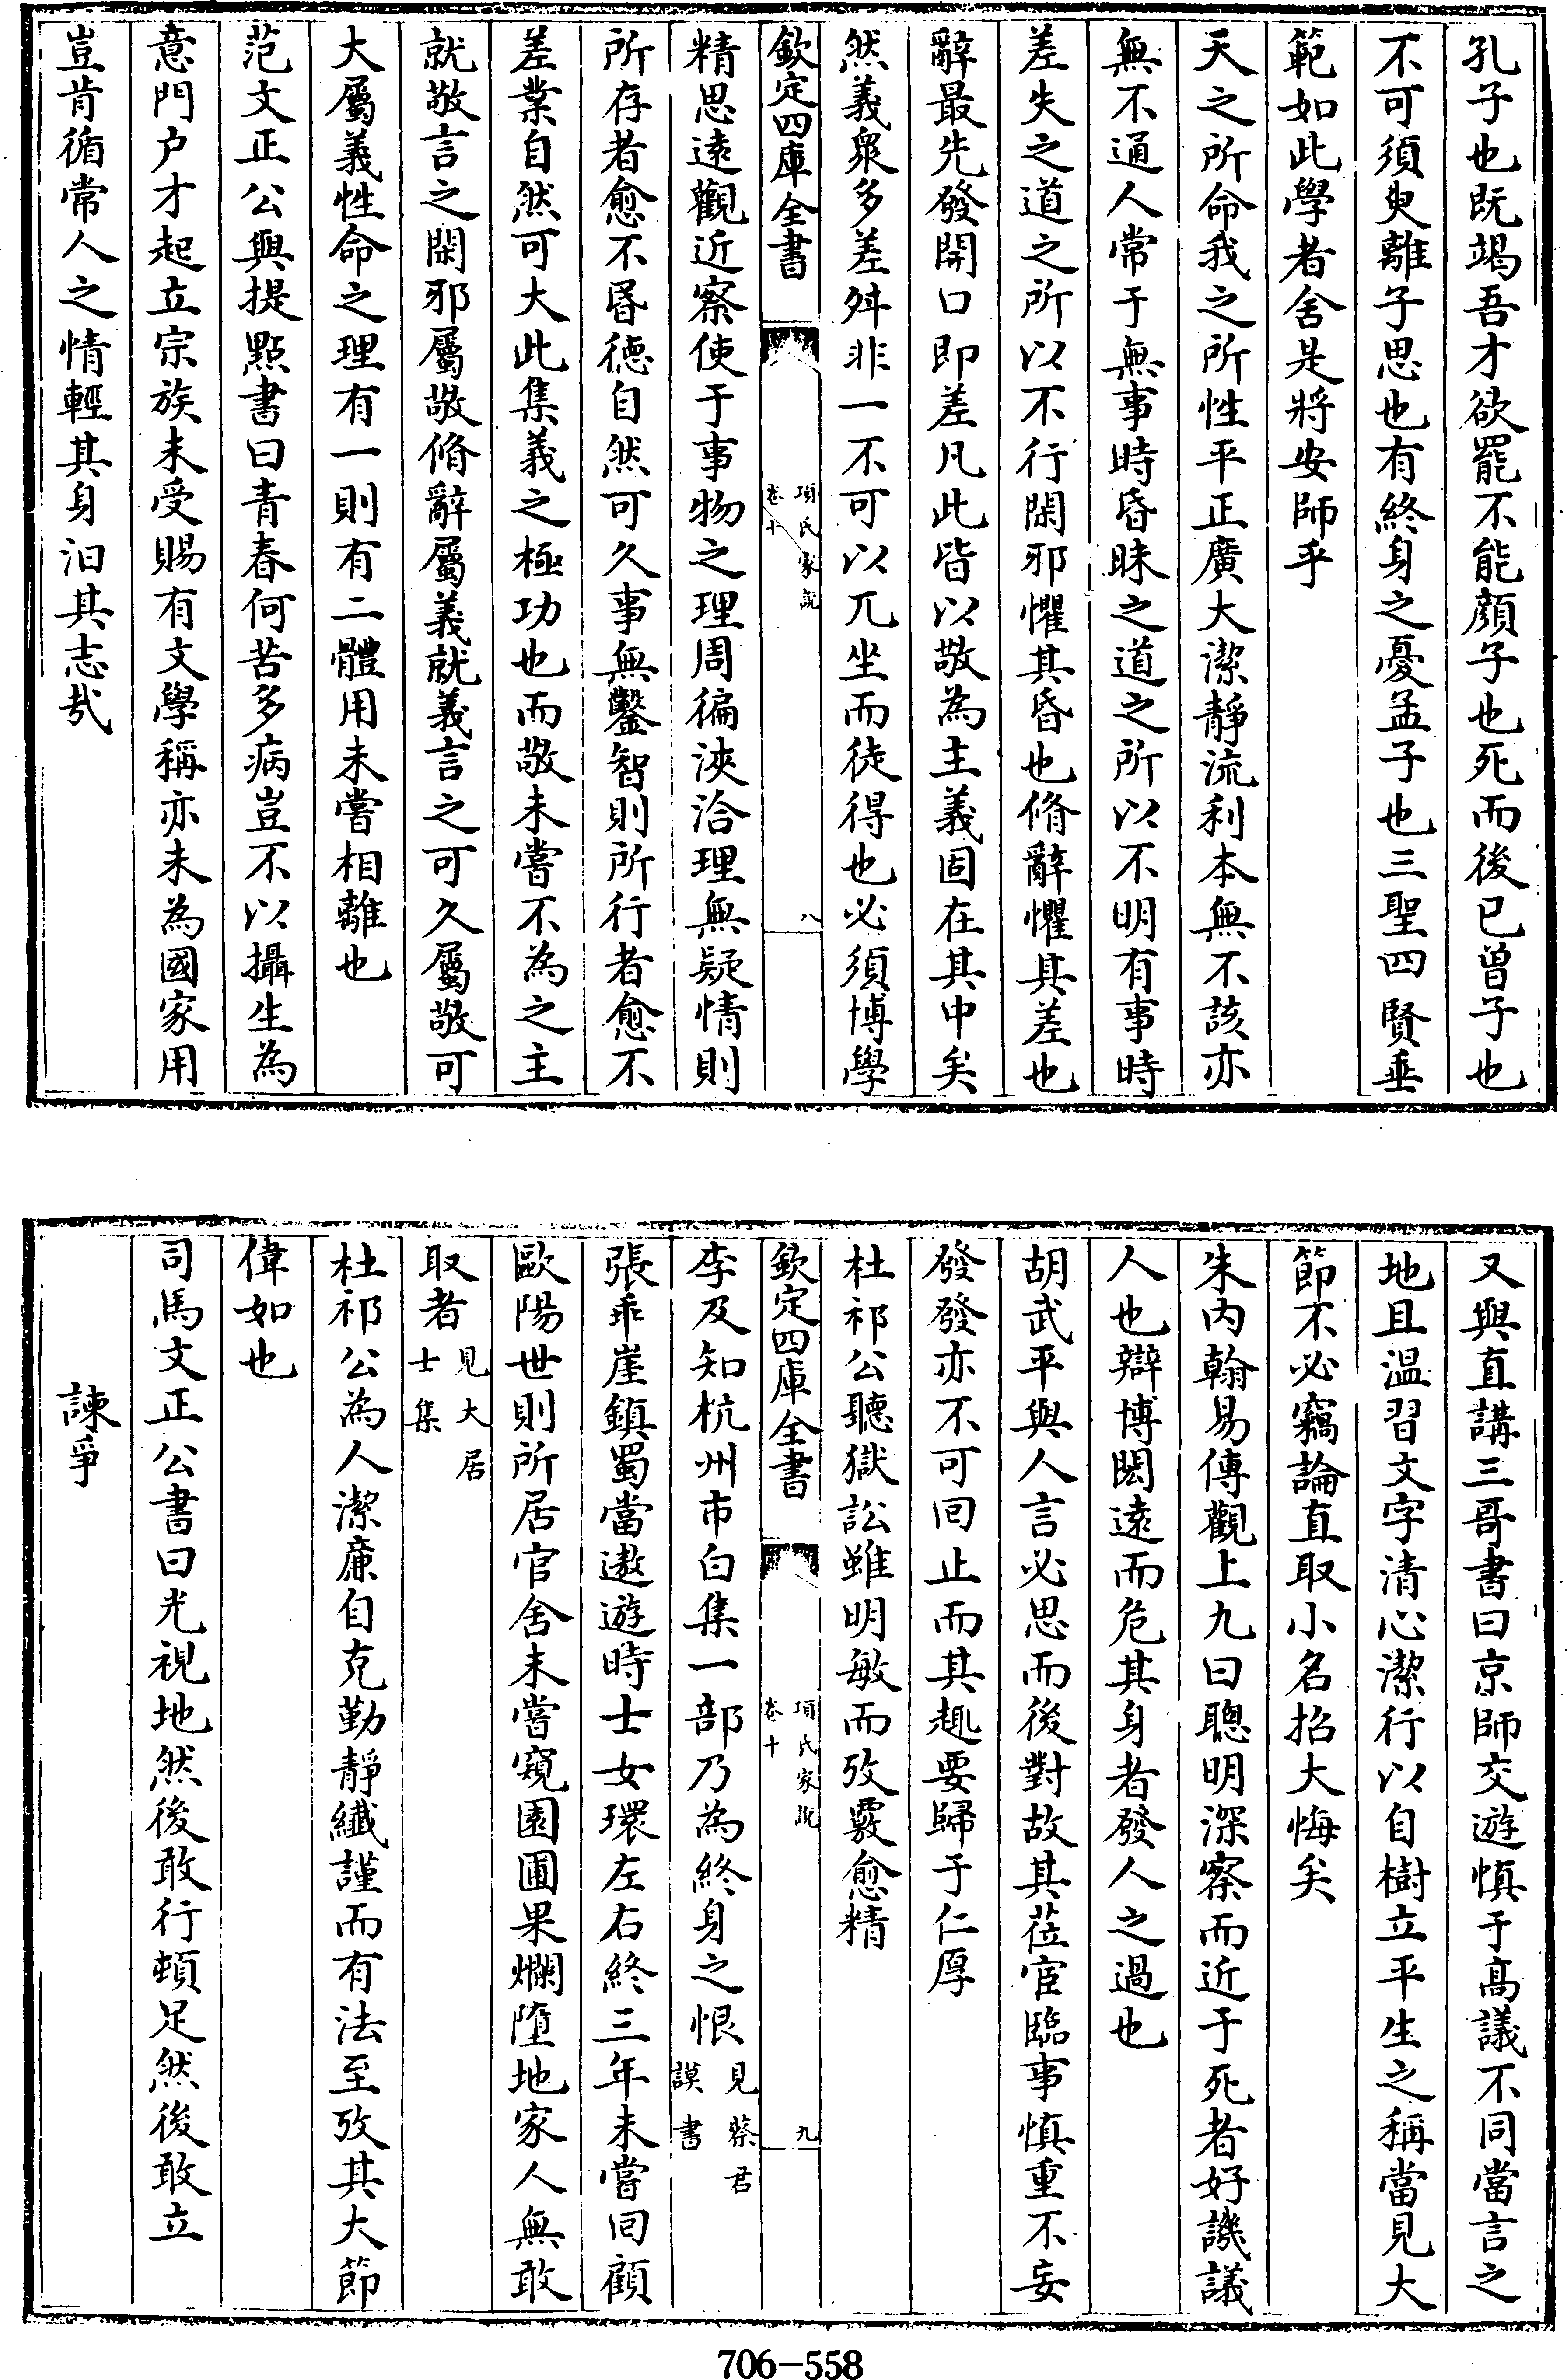 孔子也既竭吾才欲罷不能顔子也死而後已曾子也
不可須臾離子思也有終身之憂孟子也三聖四賢垂
範如此學者舍是將安師乎
天之所命我之所性平正廣大潔靜流利本無不該亦
無不通人常于無事時昏昧之道之所以不明有事時
差失之道之所以不行閑邪懼其昏也脩辭懼其差也
辭最先發開口即差凡此皆以敬為主義固在其中矣
然義衆多差舛非一不可以兀坐而徒得也必須博學
欽定四庫全書 項氏家說 卷十 八
精思遠觀近察使于事物之理周徧浹洽理無疑情則
所存者愈不昬徳自然可久事無鑿智則所行者愈不
差業自然可大此集義之極功也而敬未嘗不為之主
就敬言之閑邪屬敬脩辭屬義就義言之可久屬敬可
大屬義性命之理有一則有二體用未嘗相離也
范文正公與提點書曰青春何苦多病豈不以攝生為
意門户才起立宗族未受賜有文學稱亦未為國家用
豈肯循常人之情輕其身汩其志哉
又與直講三哥書曰京師交遊慎于髙議不同當言之
地且温習文字清心潔行以自樹立平生之稱當見大
節不必竊論直取小名招大悔矣
朱内翰易傳觀上九曰聰明深察而近于死者好譏議
人也辯博閎遠而危其身者發人之過也
胡武平與人言必思而後對故其莅官臨事慎重不妄
發發亦不可囘止而其趣要歸于仁厚
杜祁公聽獄訟雖明敏而攷覈愈精
欽定四庫全書 項氏家說 卷十 九
李及知杭州市白集一部乃為終身之恨見蔡君謨書
張乖崖鎮蜀當遨遊時士女環左右終三年未嘗囘顧
歐陽世則所居官舍未嘗窺園圃果爛墮地家人無敢
取者見大居士集
杜祁公為人潔廉自克勤靜纖謹而有法至攷其大節
偉如也
司馬文正公書曰光視地然後敢行頓足然後敢立
諫爭
706-558